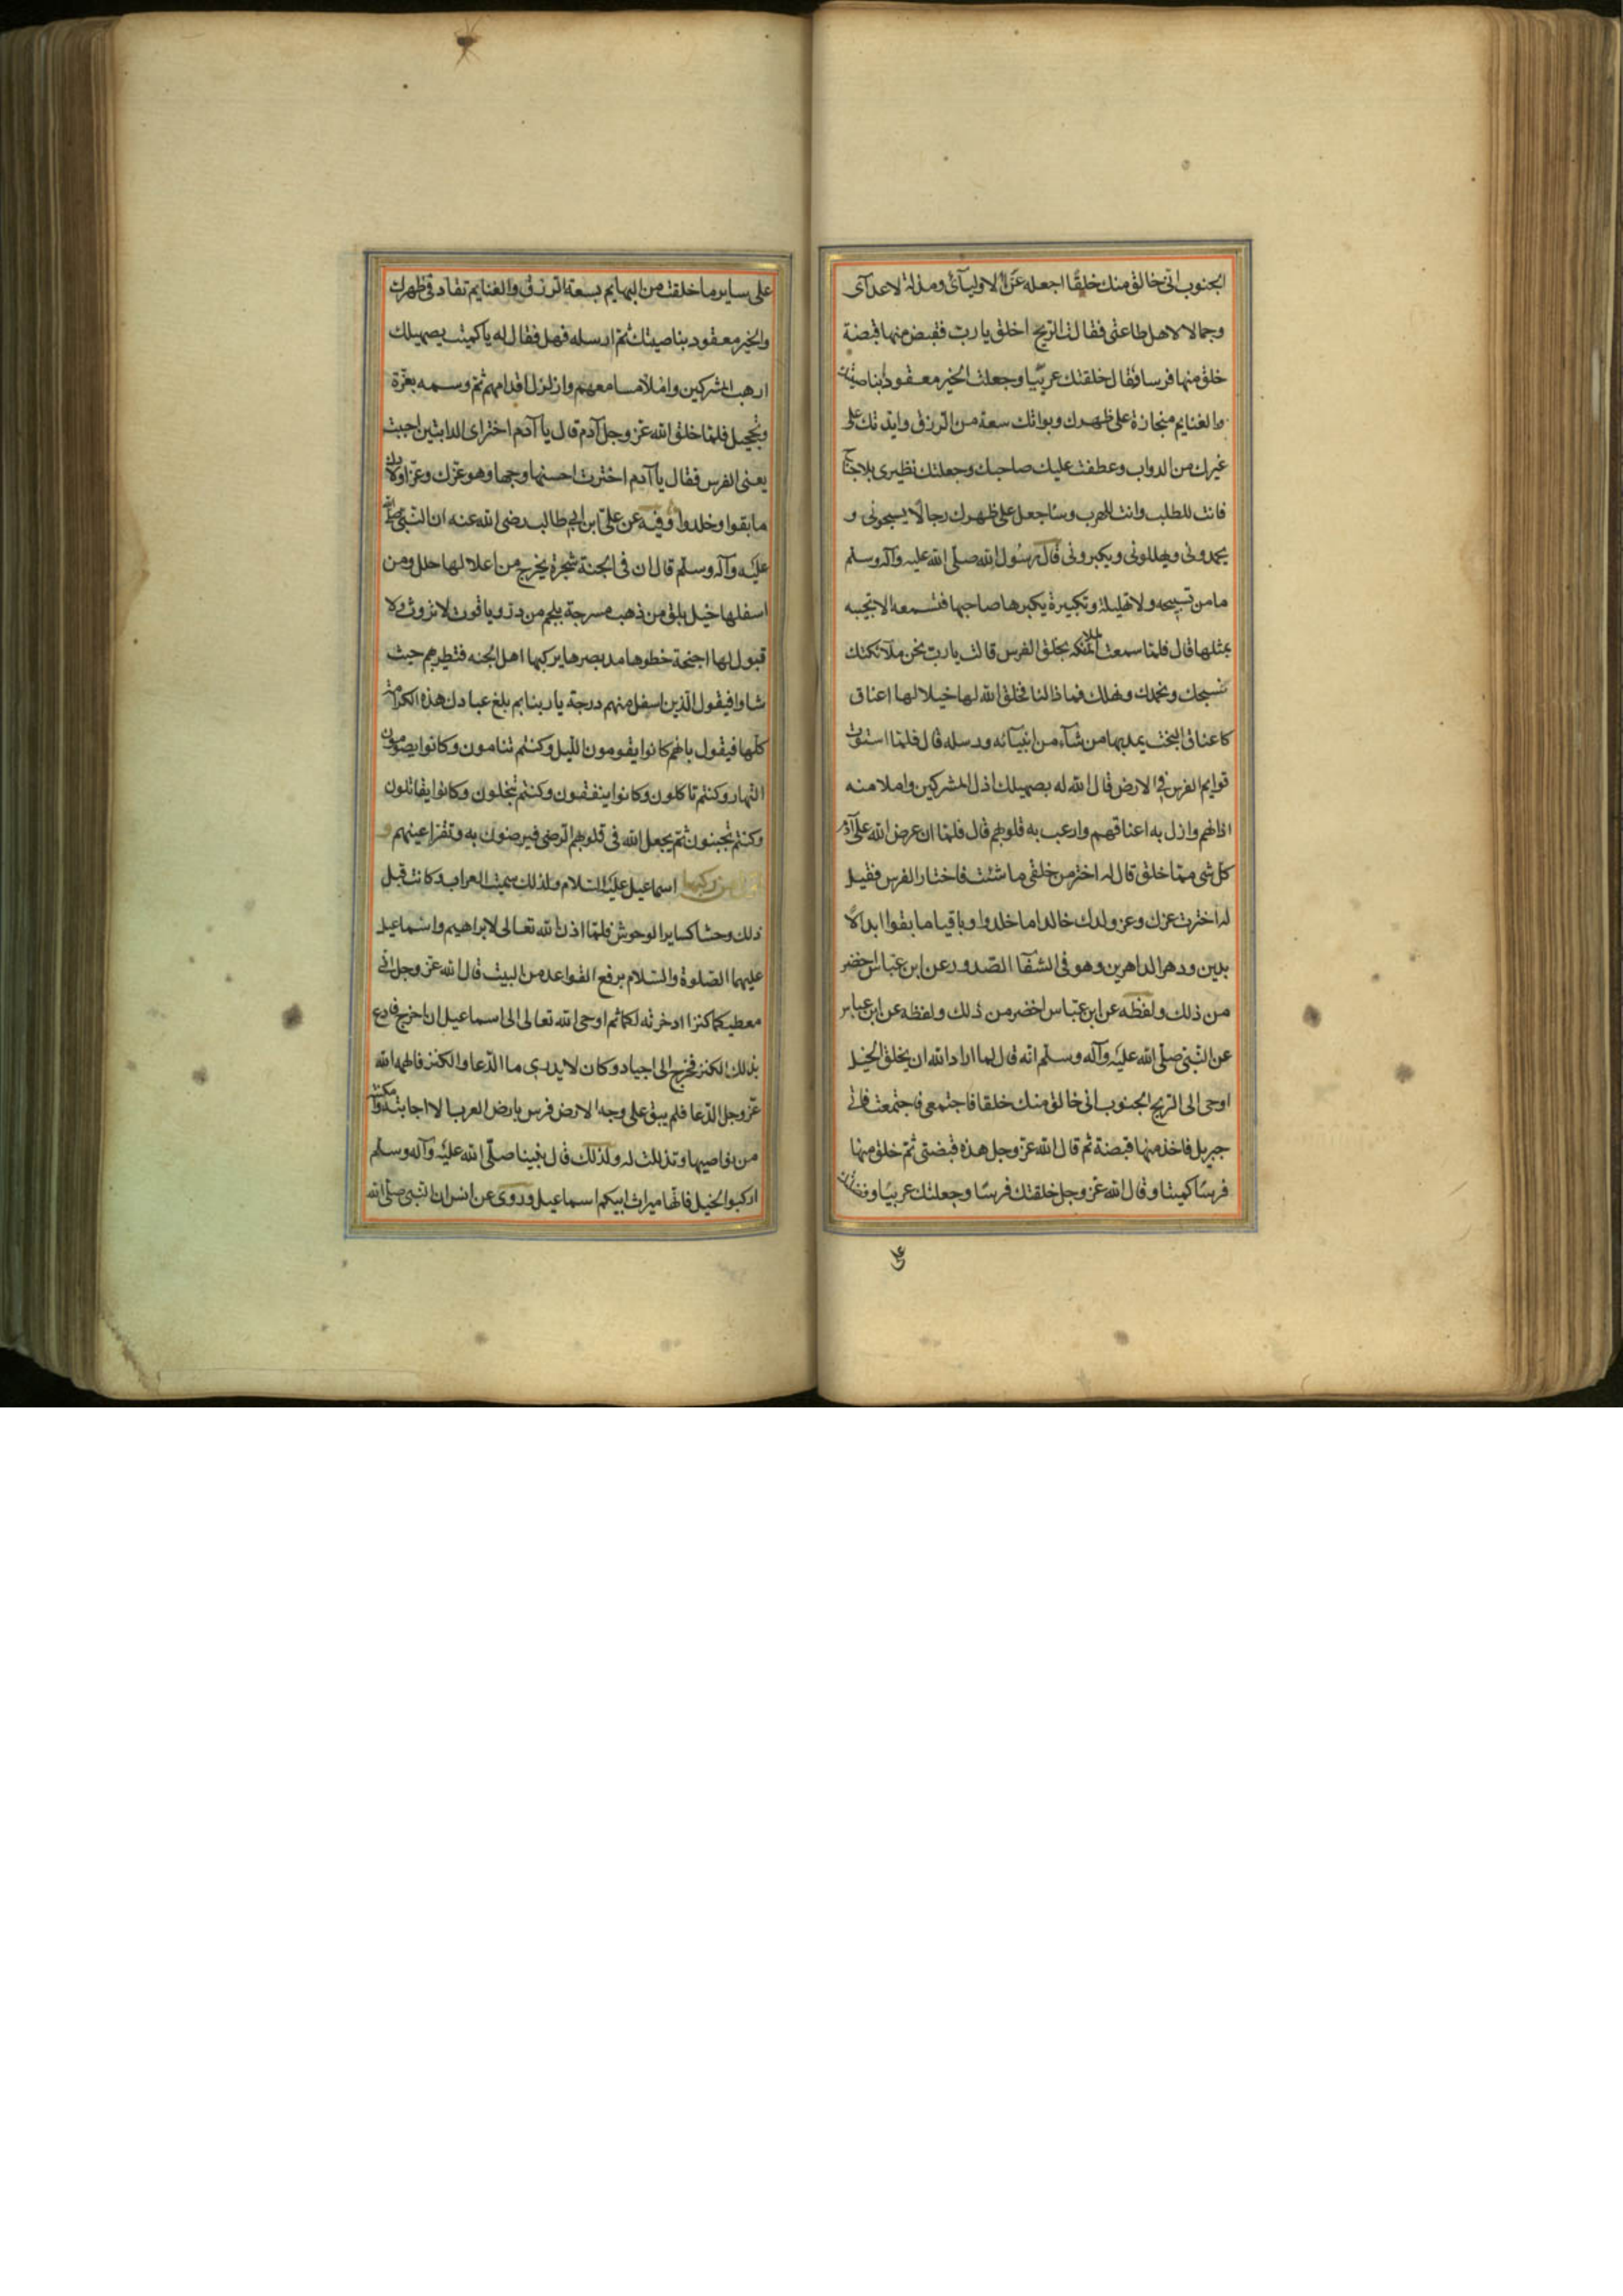 الجنوب انى خالق منك خلقًا اجعله عزّا لاوليآئى ومذلة لاعدآى
وجمالا لاهل طاعتى فقالت الريح اخلق يا رب فقبض منها قبضة
خلق منها فرسا فقال خلقتك عربيّا وجعلت الخير معقودا بناصيتك
والغنايم منحازة على ظهرك وبواتك سعة من الرزق وايدتك على
غيرك من الدواب وعطفت عليك صاحبك وجعلتك نظيرى بلا جناح
فانت للطلب وانت للهرب وساجعل على ظهرك رجالا يسبحونى و
يحمدونى ويهللونى ويكبرونى قال رسول الله صلّى الله عليه وآله وسلم
ما من تسبيحه ولا تهليلة وتكبيرة يكبرها صاحبها فتسمعه الا تجيبه
بمثلها قال فلمّا سمعت الملائكه بخلق الفرس قالت يا رب نحن ملآئكتك
نسبحك ونحمدك ونهلك فما ذا لنا فخلق الله لها خيلا لها اعناق
كاعناق البخت يمد بها من شآء من انبيآئه ورسله قال فلمّا استوت
قوايم الفرس فى الارض قال الله له بصهيلك اذل المشركين واملا منه
اذانهم واذل به اعناقهم وارعب به قلوبهم قال فلمّا ان عرض الله على آدم
كل شى ممّا خلق قال له اختر من خلقى ما شئت فاختار الفرس فقيل
له اخترت عزك وعز ولدك خالدا ما خلدوا وباقيا ما بقوا ابد الا
بدين ودهر الداهرين وهو فى الشفآ الصدور عن ابن عبّاس اخضر
من ذلك ولفظه عن ابن عبّاس اخضر من ذلك ولفظه عن ابن عباس
عن النّبى صلّى الله عليه وآله وسلّم انه قال لما اراد الله ان يخلق الخيل
اوحى الى الريح الجنوب انى خالق منك خلقا فاجتمعى فاجتمعت فاتى
جبريل فاخذ منها قبضة ثم قال الله عزّ وجل هذه قبضتى ثمّ خلق منها
فرسًا كميتا وقال الله عزّ وجل خلقتك فرسًا وجعلتك عربيّا وفضلتك
على
على ساير ما خلقت من البهايم بسعة الرزق والغنايم تقاد فى ظهرك
والخير معقود بناصيتك ثمّ ارسله فهل فقال له يا كميت بصهيلك
ارهب المشركين واملا مسامعهم وازلزل اقدامهم ثمّ وسمه بغرّة
وتحجيل فلمّا خلق الله عزّ وجل آدم قال يا آدم اختر اى الدابتين احببت
يعنى الفرس فقال يا آدم اخترت احسنها وجها وهو عزّك وعزّ اولادك
ما بقوا وخلدوا وفيه عن على ابن ابى طالب رضى الله عنه ان النّبى صلّى الله
عليه وآله وسلّم قال ان فى الجنة شجرة يخرج من اعلا لها حلل ومن
اسفلها خيل بلق من ذهب مسرجة بلجم من درّ وياقوت لا تروث ولا
تبول لها اجنحة خطوها مد بصرها يركبها اهل الجنه فتطير بهم حيث
شاوا فيقول الّذين اسفل منهم درجة يا ربنا بم بلغ عبادك هذه الكرامة
كلّها فيقول بانهم كانوا يقومون اللّيل وكنتم تنامون وكانوا يصومون
النّهار وكنتم تاكلون وكانوا ينفقون وكنتم تبخلون وكانوا يقاتلون
وكنتم تجبنون ثمّ يجعل الله فى قلوبهم الرضى فيرضون به وتقر اعينهم و
من ركبها اسماعيل عليه السّلام ولذلك سميت العراب وكانت قبل
ذلك وحشا كساير الوحوش فلمّا اذن الله تعالى لابراهيم واسماعيل
عليهما الصّلوة والسّلام برفع القواعد من البيت قال الله عزّ وجل انى
معطيكما كنزا ادخرته لكما ثم اوحى الله تعالى الى اسماعيل ان اخرج فادع
بذلك الكنز فخرج الى اجياد وكان لا يدرى ما الدّعا والكنز فالهمه الله
عزّ وجل الدّعا فلم يبق على وجه الارض فرس بارض العرب الا اجابته
من نواصيها وتذللت له ولذلك قال نبينا صلّى الله عليه وآله وسلّم
اركبوا الخيل فانّها ميراث ابيكم اسماعيل وروى عن انس ان النبى صلّى الله